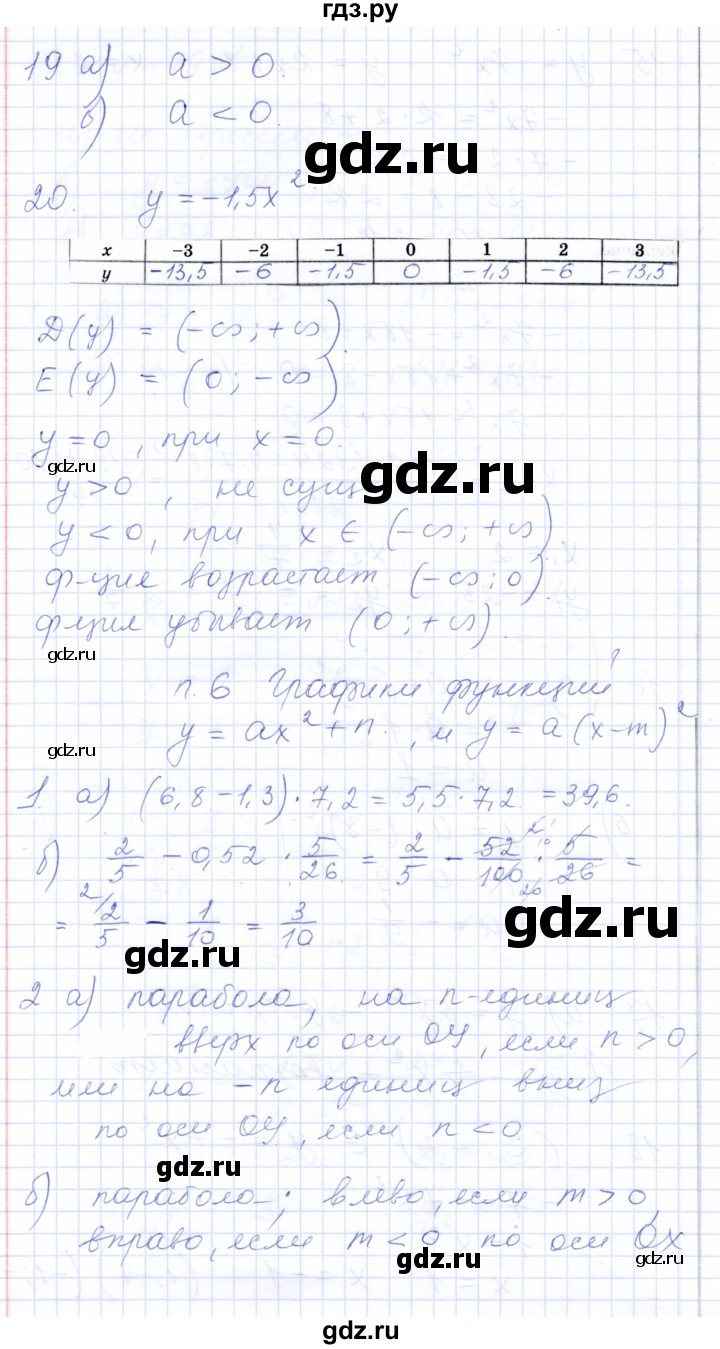 гдз.ру
19 а) a > 0.
б) a < 0.
gdz.ru
20. y = -1,5x².
x -3 -2 -1 0 1 2 3
y -13,5 -6 -1,5 0 -1,5 -6 -13,5
D(y) = (-∞; +∞).
E(y) = (0; -∞)
y = 0, при x = 0.
gdz.ru
gdz.ru
y > 0, не сущ
y < 0, при x ∈ (-∞; +∞)
ф-ция возрастает (-∞; 0).
ф-ция убывает (0; +∞).
gdz.ru
п. 6 Графики функций
y = ax² + n. , и y = a(x-m)²
gdz.ru
1. а) (6,8 - 1,3) · 7,2 = 5,5 · 7,2 = 39,6.
б) 2/5 - 0,52 · 5/26 = 2/5 - 52/100 · 5/26 =
= 2/5 - 1/10 = 3/10
gdz.ru
gdz.ru
2 а) парабола, на n-единиц
вверх по оси OY, если n > 0,
или на -n единиц вниз
по оси OY, если n < 0.
gdz.ru
б) парабола; влево, если m > 0,
вправо, если m < 0 по оси OX
gdz.ru
gdz.ru
gdz.ru